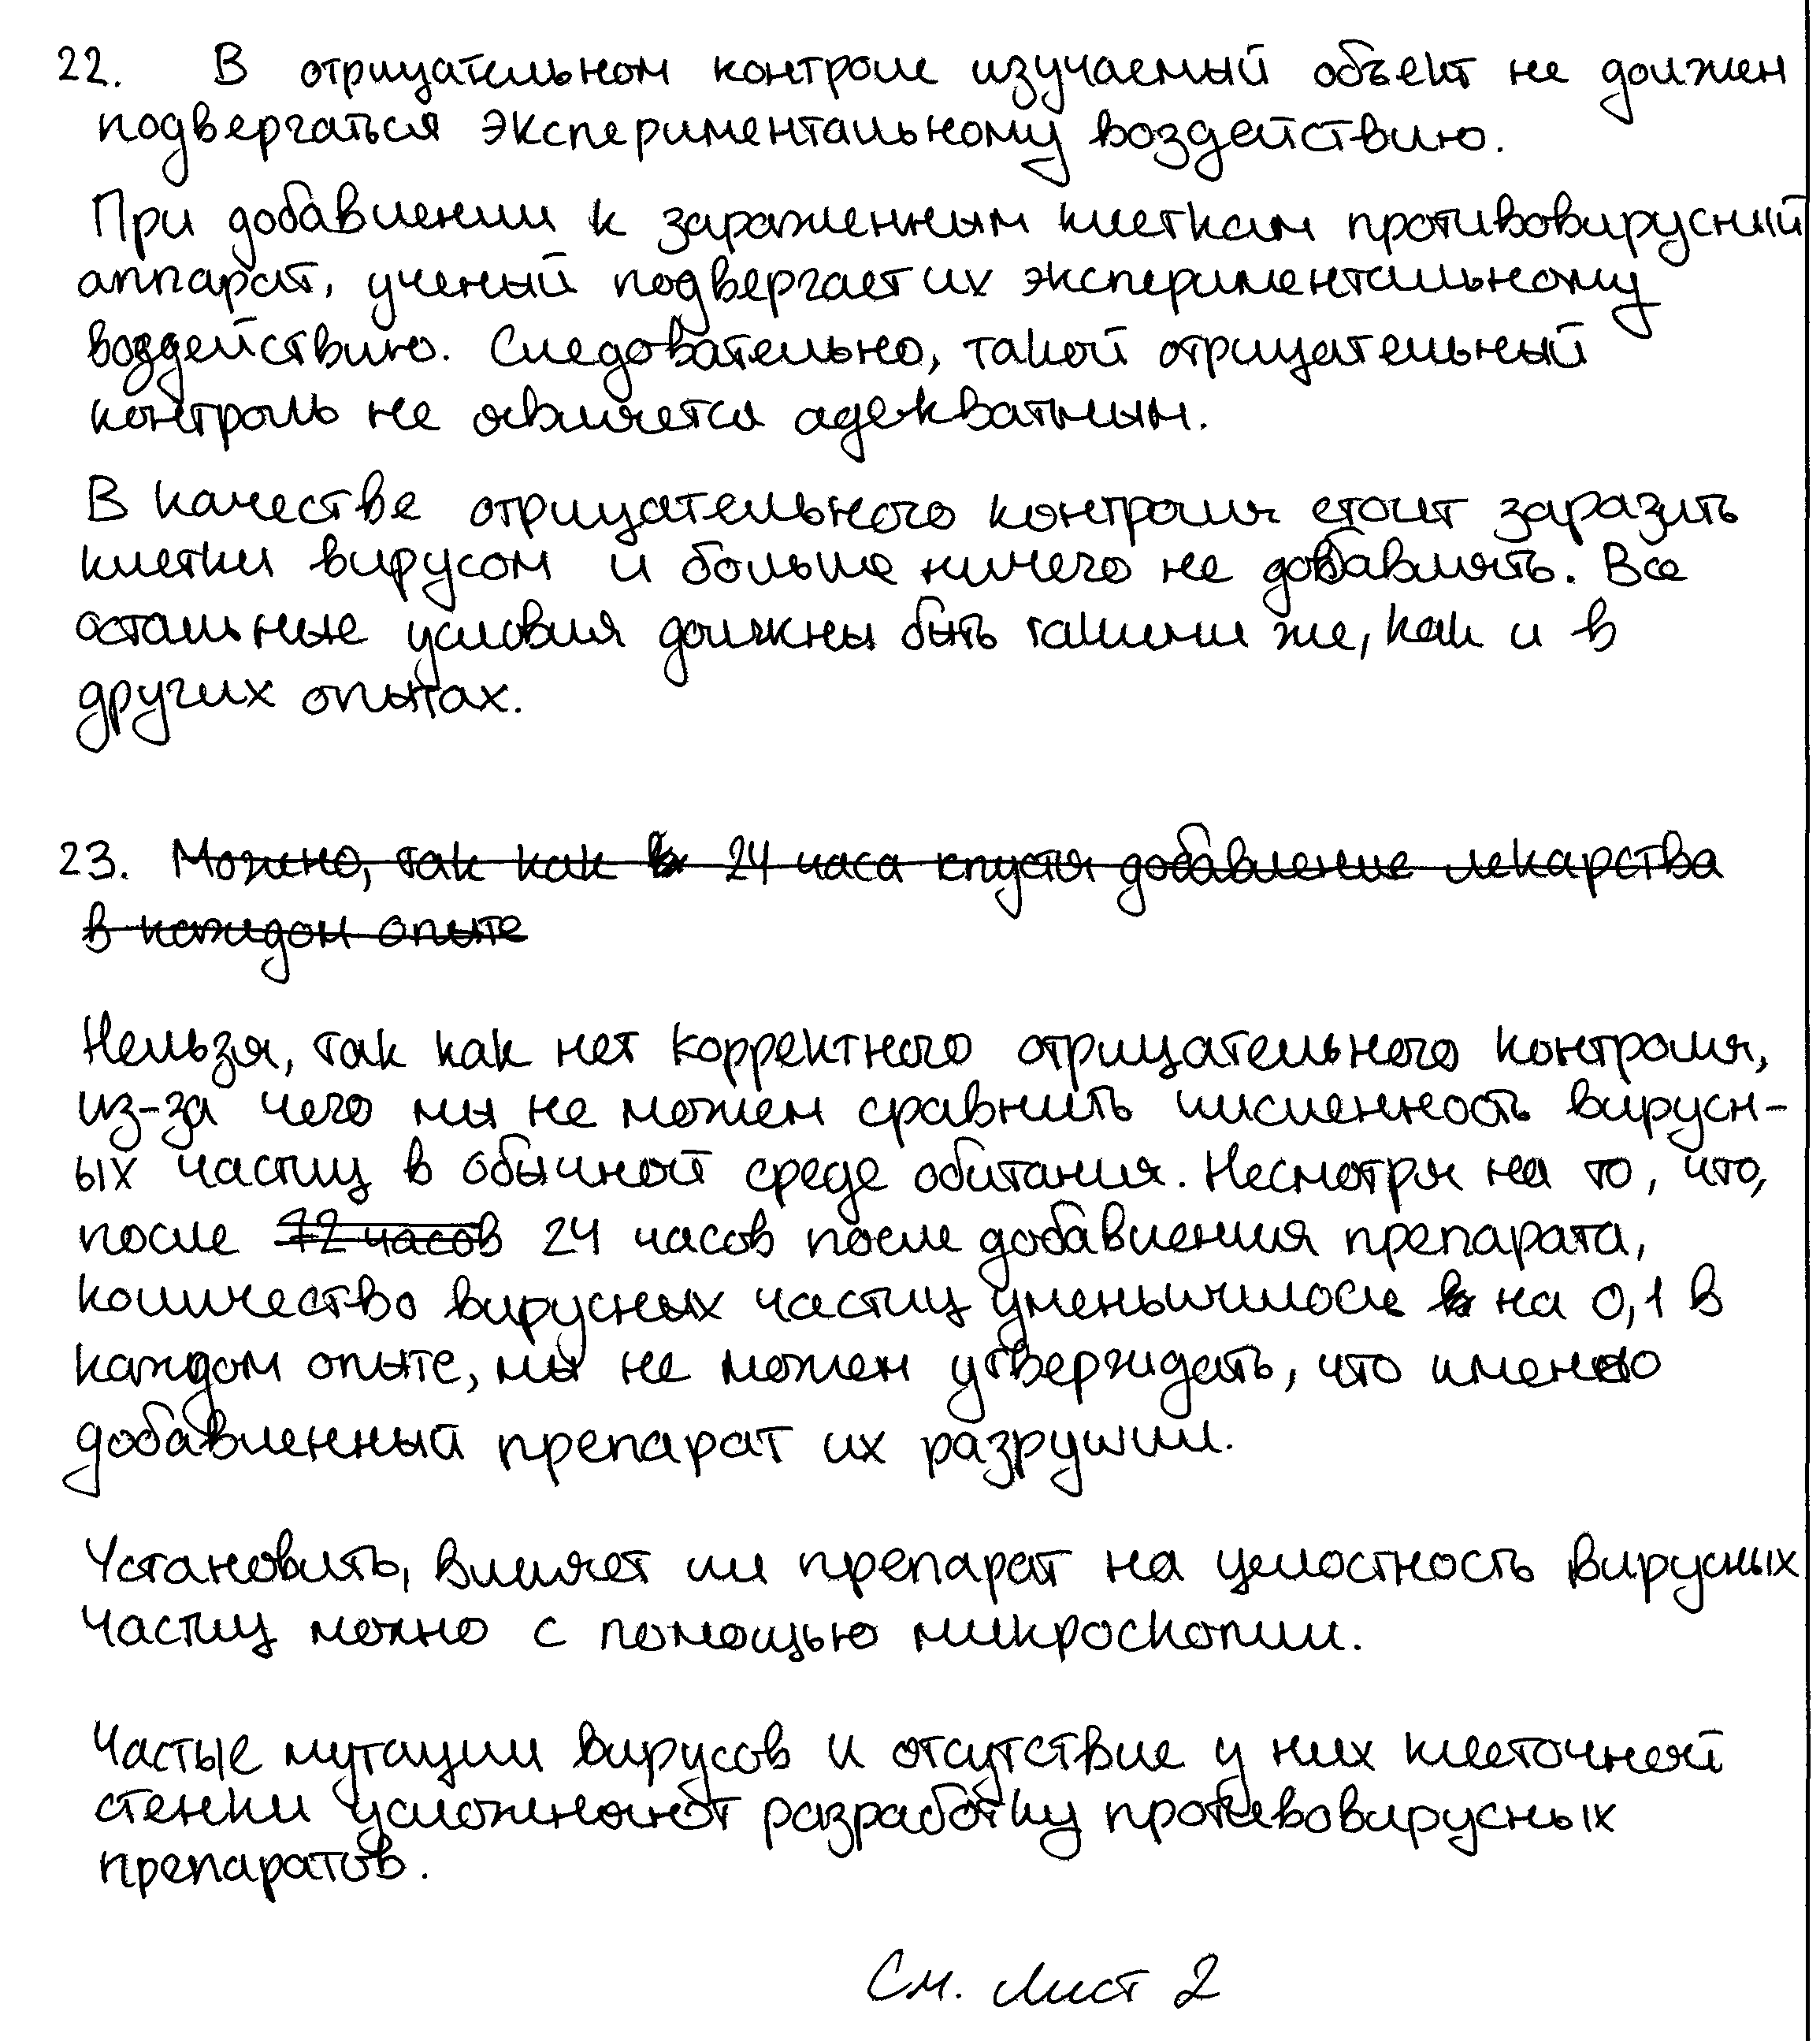 22. В отрицательном контроле изучаемый объект не должен
подвергаться экспериментальному воздействию.
При добавлении к зараженным клеткам противовирусный
аппарат, ученый подвергает их экспериментальному
воздействию. Следовательно, такой отрицательный
контроль не является адекватным.
В качестве отрицательного контроля стоит заразить
клетки вирусом и больше ничего не добавлять. Все
остальные условия должны быть такими же, как и в
других опытах.
23. Можно, так как в 24 часа спустя добавление лекарства
в каждом опыте
Нельзя, так как нет корректного отрицательного контроля,
из-за чего мы не можем сравнить численность вирусн-
ых частиц в обычной среде обитания. Несмотря на то, что,
после 72 часов 24 часов после добавления препарата,
количество вирусных частиц уменьшилось в на 0,1 в
каждом опыте, мы не можем утверждать, что именно
добавленный препарат их разрушил.
Установить, влияет ли препарат на целостность вирусных
частиц можно с помощью микроскопии.
Частые мутации вирусов и отсутствие у них клеточной
стенки усложняют разработку противовирусных
препаратов.
См. Лист 2